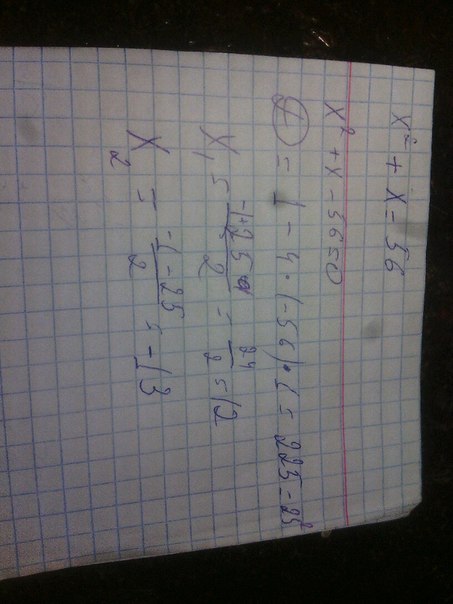 x² + x = 56
x² + x - 56 = 0
D = 1 - 4 · (-56) · 1 = 225 = 25²
X₁ = -1+25 / 2 = 24 / 2 = 12
X₂ = -1-25 / 2 = -13